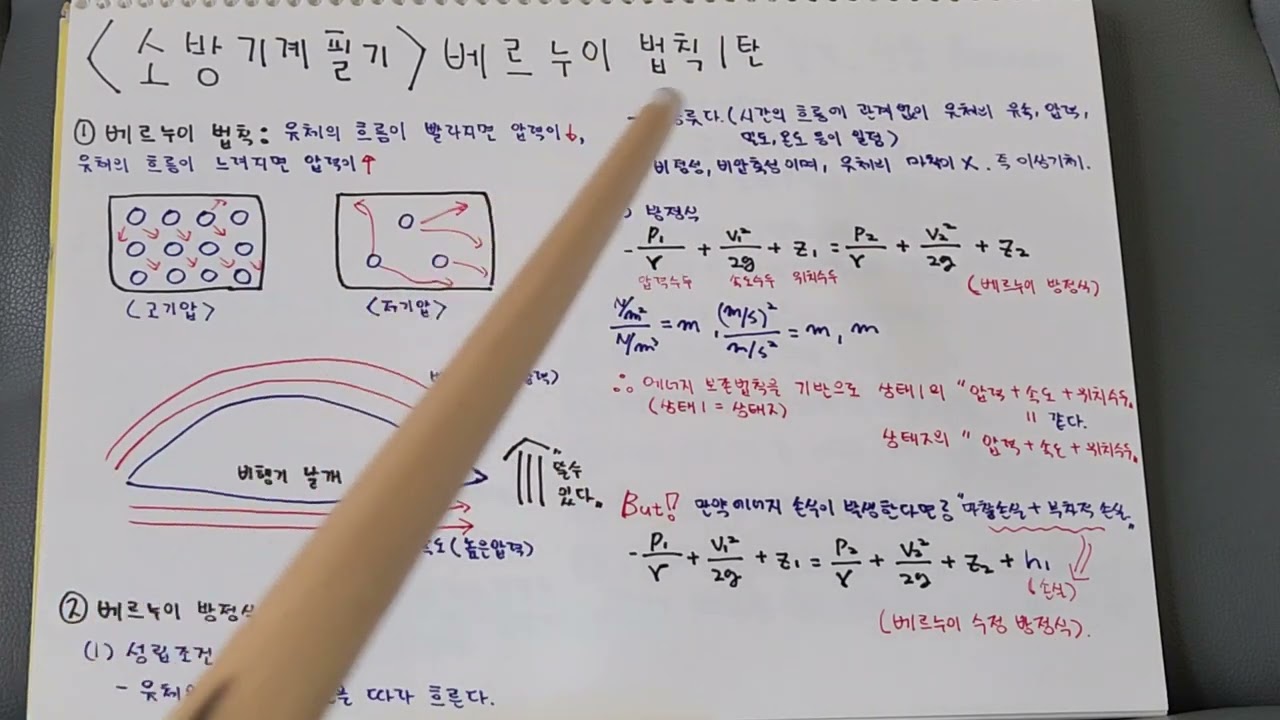 <소방기계필기> 베르누이 법칙 1탄
① 베르누이 법칙: 유체의 흐름이 빨라지면 압력이↓,
유체의 흐름이 느려지면 압력이↑
<고기압>
<저기압>
비행기 날개
"뜰수
있다"
속도(높은압력)
② 베르누이 방정식
(1) 성립조건
- 유체 따라 흐른다.
(시간의 흐름에 관계없이 유체의 유속, 압력,
밀도, 온도 등이 일정)
비정성, 비압축성이며, 유체의 마찰이 X. 즉 이상기체.
방정식
- P₁/γ + V₁²/2g + Z₁ = P₂/γ + V₂²/2g + Z₂
압력수두 속도수두 위치수두
(베르누이 방정식)
N/m²/N/m³ = m, (m/s)²/m/s² = m, m
∴ 에너지 보존법칙을 기반으로 상태1의 "압력+속도+위치수두"
(상태1=상태2)
= 같다.
상태2의 "압력+속도+위치수두"
But! 만약 에너지 손실이 발생한다면? "마찰손실+부차적 손실"
- P₁/γ + V₁²/2g + Z₁ = P₂/γ + V₂²/2g + Z₂ + h₁
(손실)
(베르누이 수정 방정식).